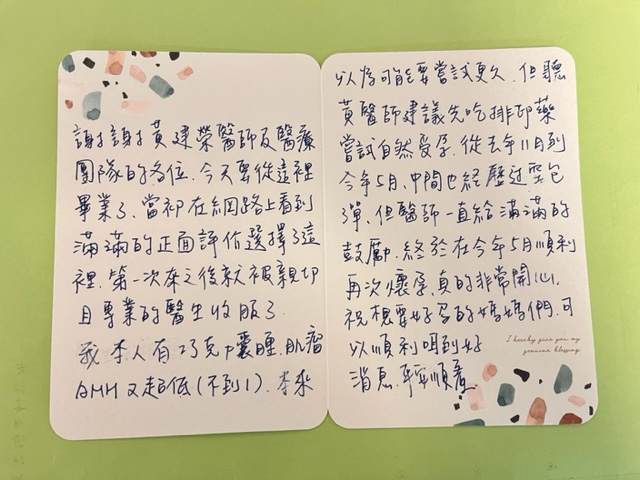 謝謝黃建榮醫師及醫療
團隊的各位、今天要從這裡
畢業了、當初在網路上看到
滿滿的正面評价選擇了這
裡、第一次來之後就被親切
且專業的醫生收服了
我本人有巧克力囊腫、肌瘤
AMH又超低(不到1)、本來
以為可能要嘗試更久、但聽
黃醫師建議先吃排卵藥
嘗試自然受孕、從去年11月到
今年5月、中間也經歷過空包
彈、但醫師一直給滿滿的
鼓勵、終於在今年5月順利
再次懷孕、真的非常開心、
祝想要好孕的媽媽們、可
以順利唱到好
消息、平安順產
I hereby give you my
genuine blessing.